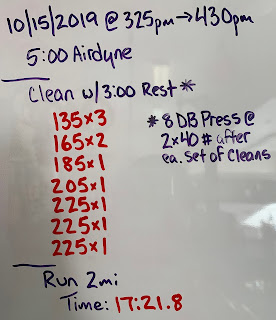 10/15/2019 @ 325pm → 430pm
5:00 Airdyne
Clean w/3:00 Rest *
135x3
165x2
185x1
205x1
225x1
225x1
225x1
* 8 DB Press @
2x40# after
ea. Set of Cleans
Run 2mi
Time: 17:21.8